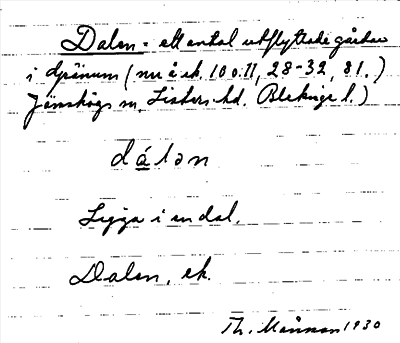 Dalen - ett antal utflyttade gårdar
i Gränum (nu å ek. 10 o. 11, 28-32, 81.)
Jämshögs sn, Listers hd. Blekinge l.)
dálən
Ligga i en dal.
Dalen, ek.
Th. Månsson 1930